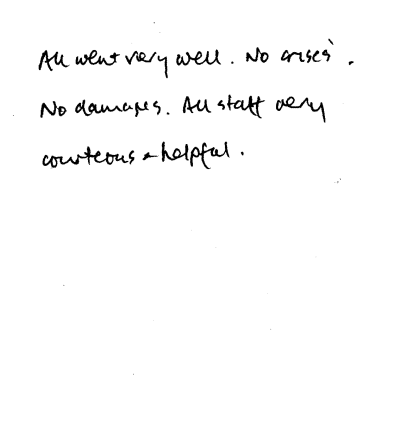 All went very well. No crises.
No damages. All staff very
courteous & helpful.